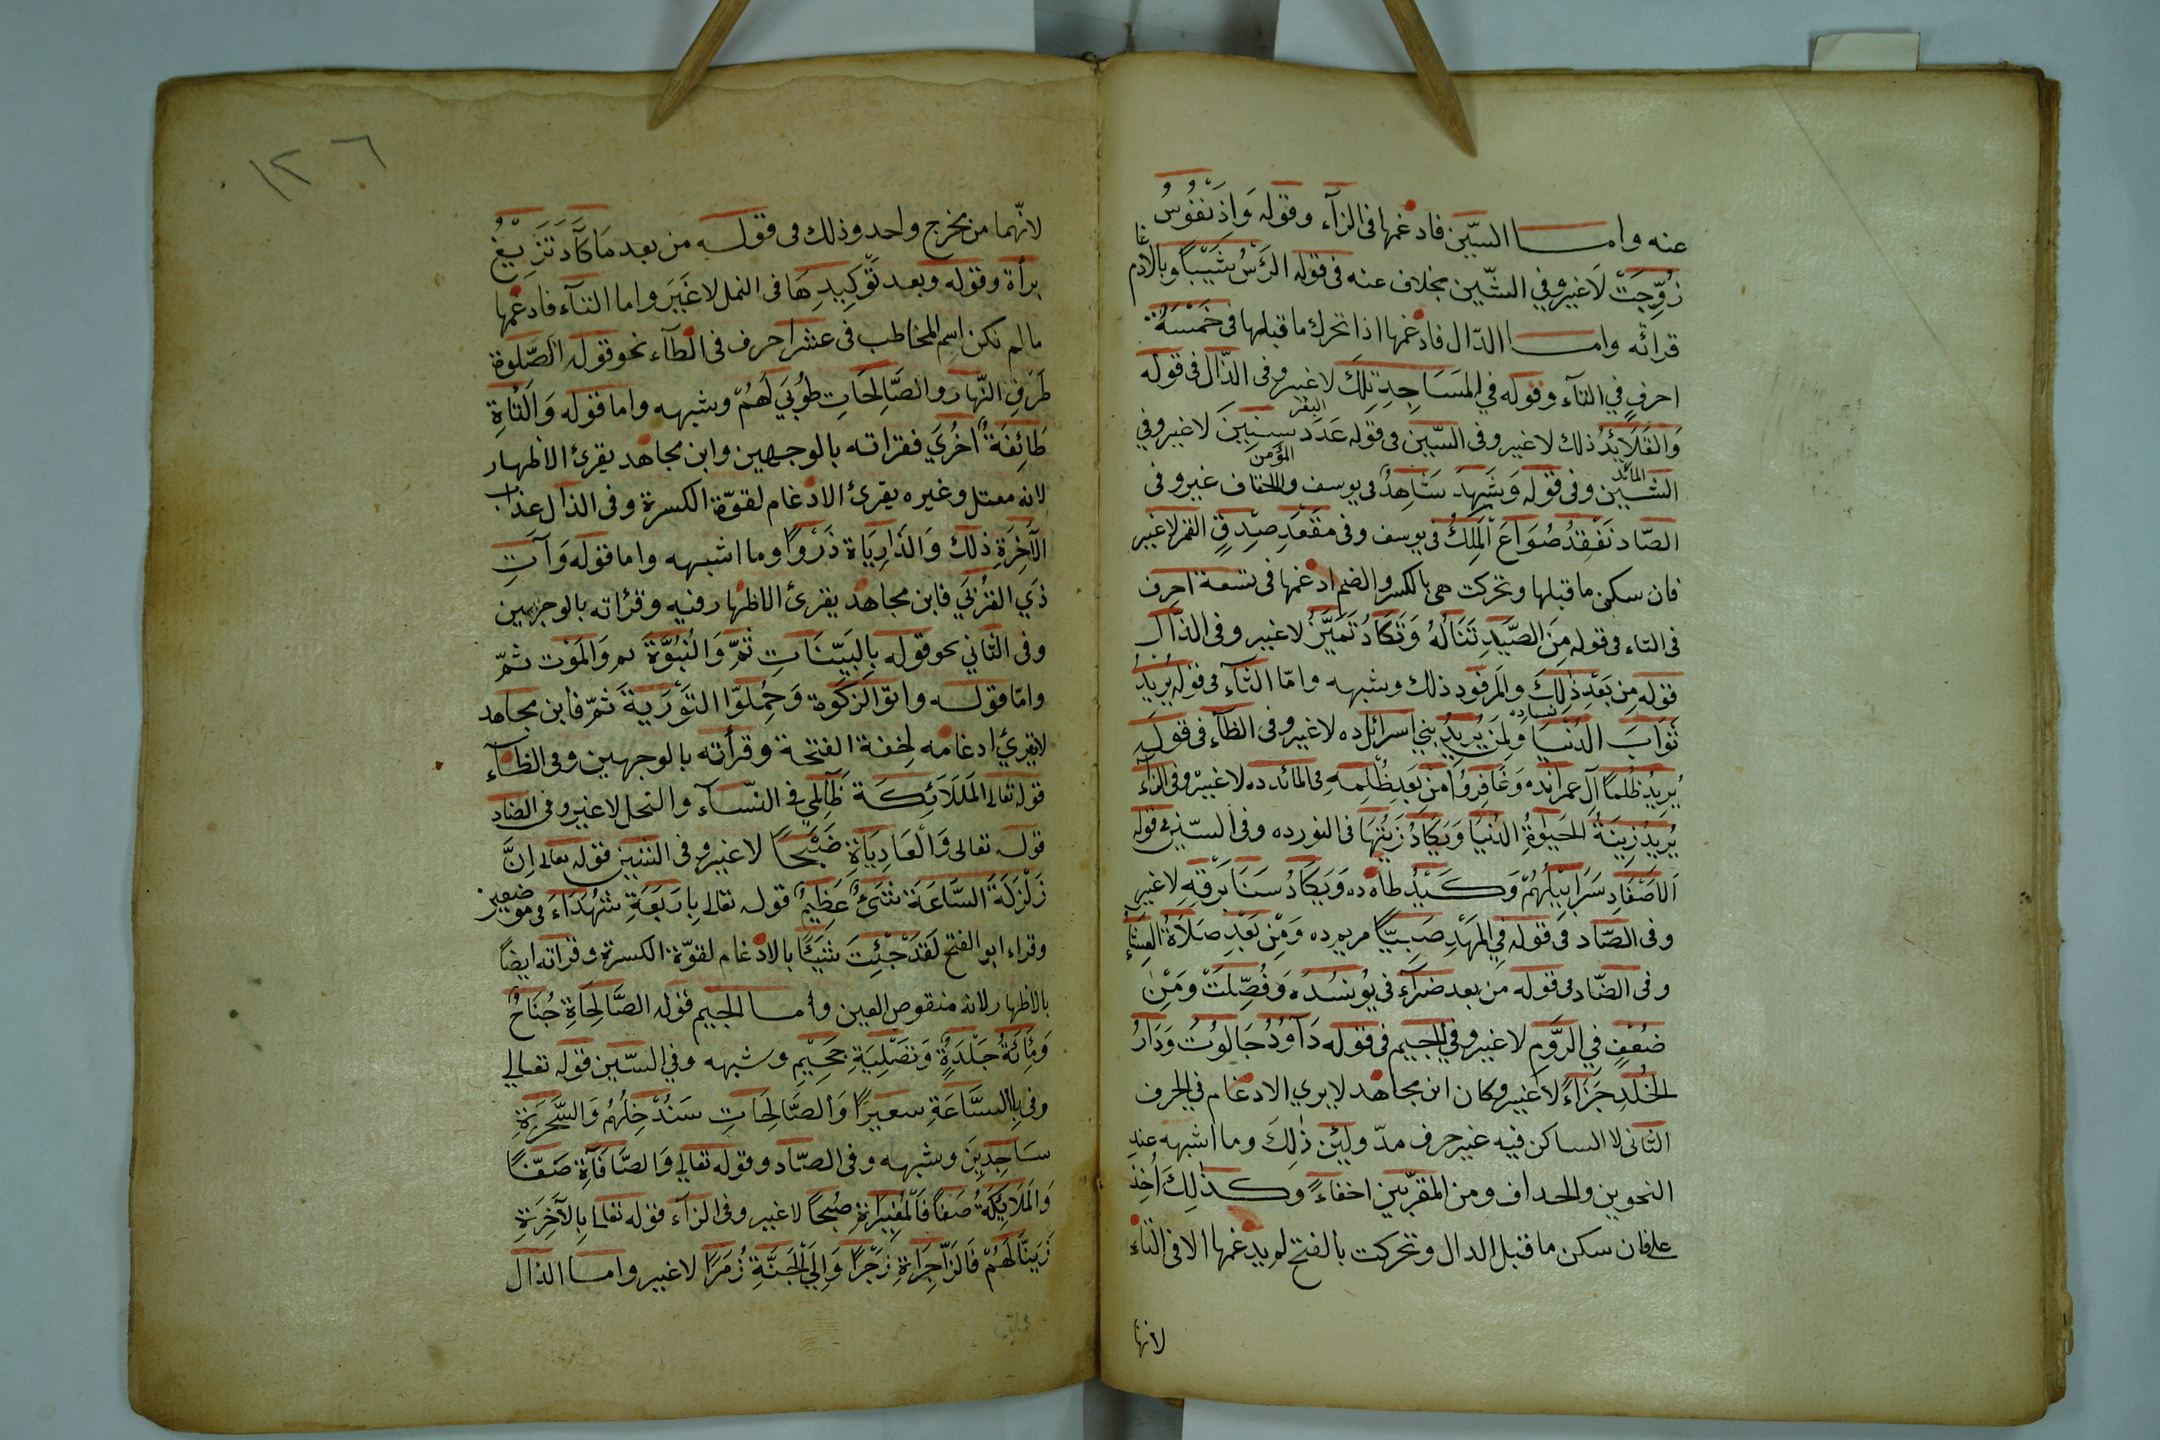 عنه واما السّين فادغمها فى الزآء وقوله وَاِذَ نْفُوُسُ
زُوِّجَتْ لَا غير وفي الشّين بخلاف عنه فى قوله الرَأسُ شَيْبًا وبالادغام
قرائه واما الدّال فادغمها اذا تحرك ما قبلها فى خَمْسَةُ
احرفٍ في التآء وقوله في المَسَاجِدِ تِلْكَ لا غير وفى الذّال فى قوله
وَالقَلَايِدُ ذلك لا غير وفى السّين فى قوله عَدَدَ سِنيِنَ لا غير وفي
المائد
المؤمن
الشين وفى قوله وَشَهِدَ شَاهِدٌ فى يوسف والاحقاف غير وفى
الصّاد نَفْقِدُ صُوَاعَ الْمَلِكُ فى يوسف وفى مَقْعَدِ صِدِقٍ القمر لا غير
فان سكن ما قبلها وتحركت هى بالكسر والضم ادغمها فى تسعة احرف
فى التاء فى قوله مِنَ الصَّيدِ تَنَالُهُ وَتَكَادُ تَمَيَّزُ لا غير وفى الذال
قوله مِن بَعْدِ ذلِكَ والمَرفود ذلك وشبهه وامّا الثآء فى قوله يُرِيدُ
ثَوَابَ الدُنْيَا وَلِمَن يُرِيدُ بني اسرائل ده لا غير وفى الظآء فى قوله
يُرِيدُ ظُلمًا آل عمران ده وَغَافِرِ وُ اَمن بَعدِ ظُلمِهِ فى المائد ده لا غير وفى الزآء
يُرِيدُ زِينَةُ الحَيٰوةُ الدُنيَا وَيَكَادُ زَيْتُهَا فى النور ده وفى السّين فى قوله
اَلاَصْفَادِ سَرَابِيْلُهُمْ وَكَيْدُ طاه ده وَيَكَادُ سَنَا بَرقِهِ لا غير
وفى الصّاد فى قوله فِي المَهْدِ صَبِيًّا مريم ده وَمِن بَعْدِ صَلاَةُ العِشَاءِ
وفى الضّاد فى قوله من بعد ضرّآء في يُونسُ ده وَفُصِّلَتْ وَمِن
ضُعْفٍ فِي الرَّومِ لا غير وفي الجيم فى قوله دَآوُدُ جَالُوتُ وَدَارُ
الخُلدِ جَزَاءً لا غير وكان ابن مجاهد لا يري الادغام في الحرف
الثانى لا الساكن فيه غير حرف مدّ ولين ذلِكَ وما اشبهه عند
النحوين والحداف ومن المقرّبين اخفاءً وكذلِكَ اُخِذ
على فان سكن ما قبل الدال وتحركت بالفتح لم يدغمها الا فى التاء
لانها
١٢٦
لانّهما من مخرج واحد وذلك فى قوله من بعد مَا كَآدَ تَزِيْغُ
برأة وقوله وبعد تَوْكِيدِ هَا فى النمل لا غَيَر واما التآء فادغمها
ما لم تكن اسم المخاطب فى عشر احرف فى الطآء نحو قوله الصَّلوة
طَرَفي النَّهار والصَّالِحَاتِ طُوُبَي لَهُمْ وشبهه واما قوله وَالتَاةِ
طَائِفَةٌ اُخرُيَ فقراته بالوجهين وابن مجاهد يقرئ الاظهار
لانه معتل وغيره يقرئ الادغام لقوّة الكسرة وفى الذال عذاب
الآخَرَةِ ذلِكَ وَالذَارِيَاة ذَرْوًا وما اشبهه واما قوله وَآتِ
ذَي القُرْبَي فابن مجاهد يقرئ الاظهار فيه وقرأته بالوجهين
وفى الثاني نحو قوله بِالبَيّنَاتِ ثُمَّ وَالنُبُوَّةَ ثم وَالمَوْت ثمّ
وامّا قوله واتوا الزكَوة وَحُمِلوّا التَوْرَيةَ ثمّ فابن مجاهد
لا يقرئ ادغامه لِخفة الفتحة وقرأته بالوجهين وفى الظآء
قوله تعالى المَلَائِكَة ظَالِمِي في النسآء والنحل لا غير وفى الضاد
قوله تعالى وَالعَادِيَاةِ ضَبْحًا لا غير وفى الشين قوله تعالى اِنَّ
زَلْزَلَةَ السَّاعَةَ شَئٌ عَظِيْمُ قوله تعالى بِارَبَعَةِ شُهَدَاءَ فى موضعين
وقراء ابو الفتح لَقَدْ جْئِتَ شَيًْا بالادغام لقوّة الكسرة وقراته ايضًا
بالاظهار لانه منقوص العين واما الجيم قوله الصَّالِحَاةِ جُنَاحٌ
وَمِائَةُ جَلْدَةٍ وَتَصْلِيَةِ جَحِيْمٍ وشبهه وفي السّين قوله تعالي
وفي بِالسَّاعَةِ سعيرًا وَالصَّالِحَاتِ سَنُدْخِلُهُم وَالسَّحَرَةِ
سَاجِدِيَن وشبهه وفى الصّاد وقوله تعَالي وَالصَّافَآةِ صَفًّا
وَالمَلَائِكَةُ صَفًا فَالمُغِيرَاةِ صُبْحًا لا غير وفى الزآء قوله تعالى بِالآخِرَةِ
زَيَنَّا لَهُمْ فَالزّاجِرَاةِ زَجْرًا وَاِلَي الْجَنَّةِ زُمَرًا لا غير واما الذال